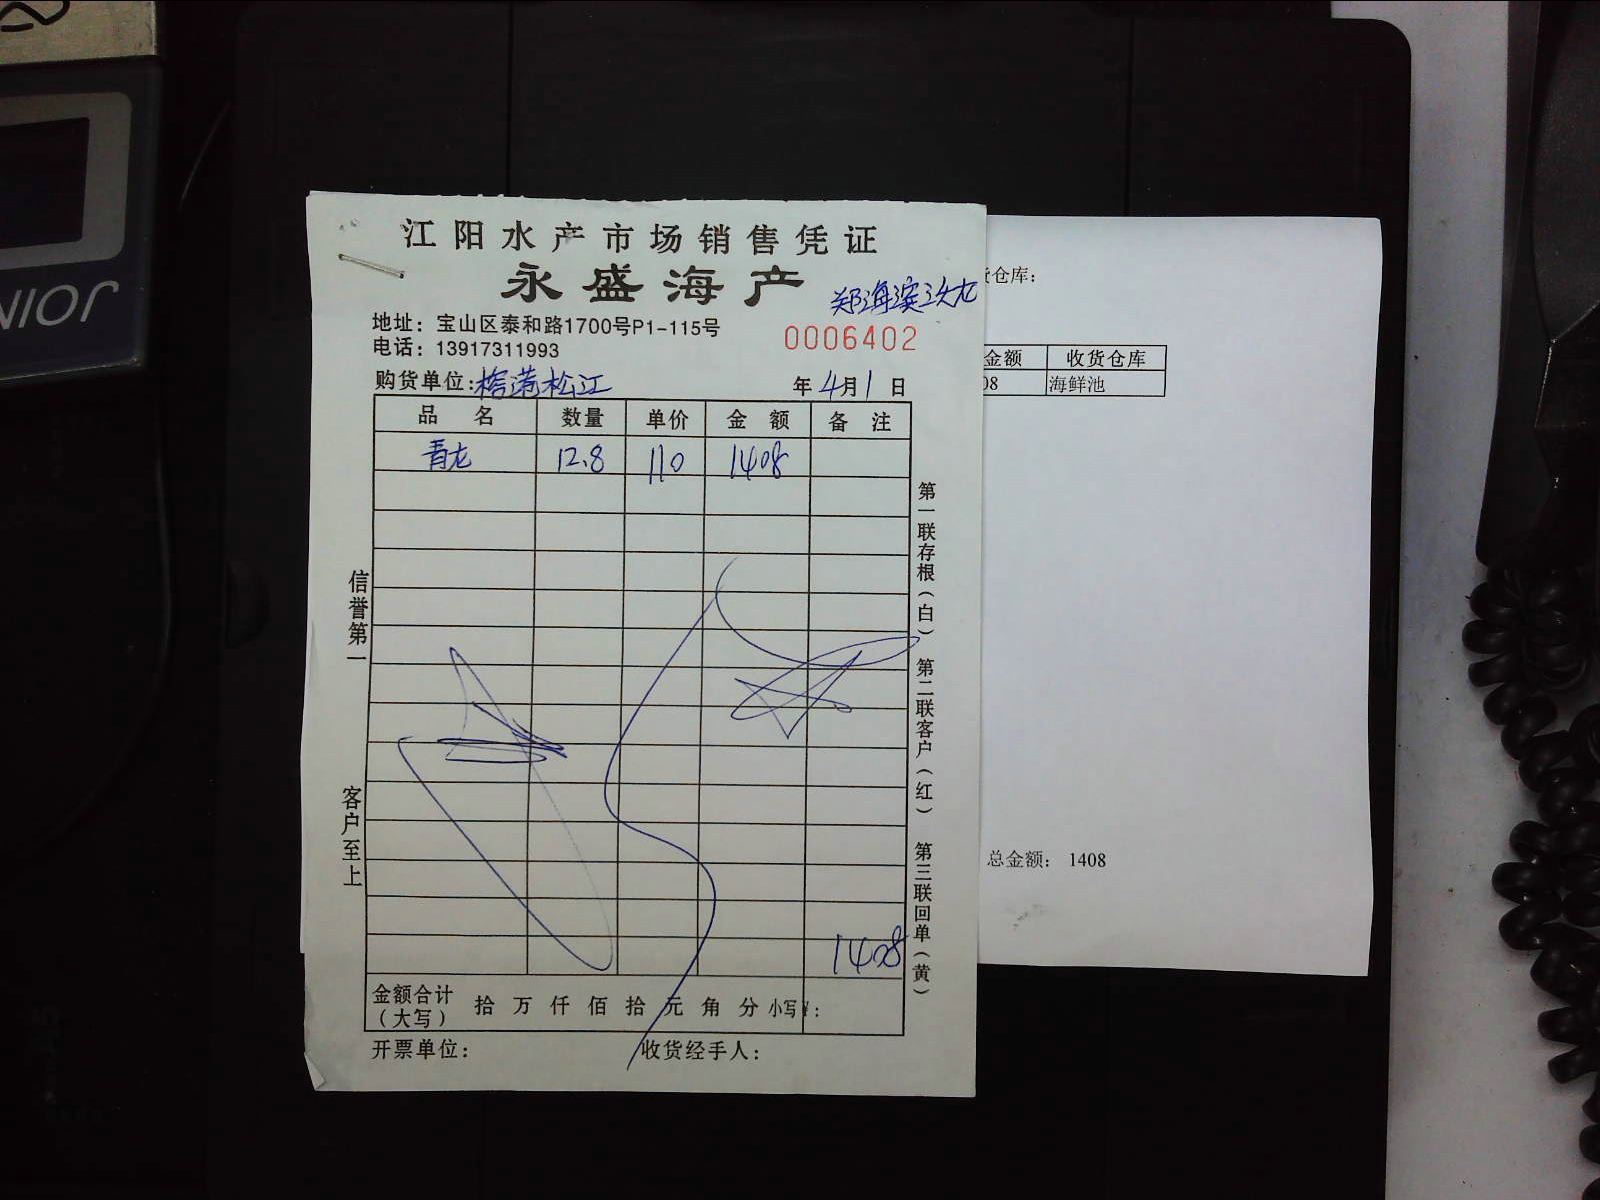 江阳水产市场销售凭证
永盛海产
地址：宝山区泰和路1700号P1-115号
0006402
电话：13917311993
购货单位：榕港松江 年4月1日
品名 数量 单价 金额 备注
青龙 12.8 110 1408
信誉第一
客户至上
第一联存根（白） 第二联客户（红） 第三联回单（黄）
1408
金额合计（大写） 拾 万 仟 佰 拾 元 角 分 小写¥：
开票单位： 收货经手人：
仓库：
金额 收货仓库
08 海鲜池
总金额： 1408
JOIN